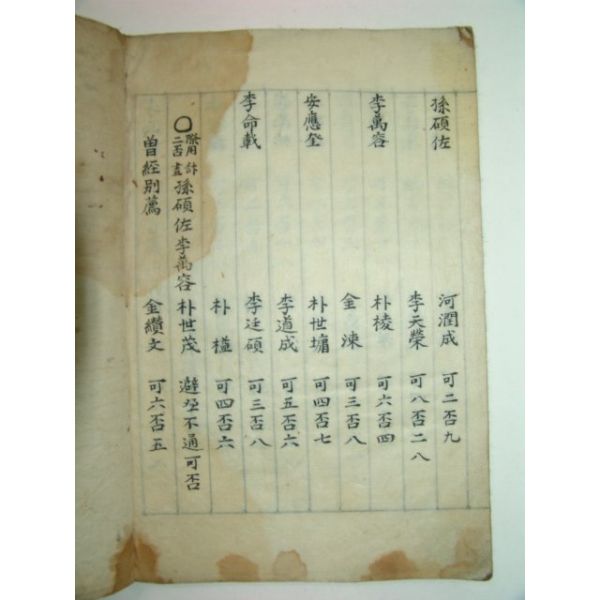 孫碩佐 河潤成 可二否九
李天榮 可八否二八
李萬容 朴棱 可六否四
金涑 可三否八
安應 朴世墉 可四否七
李道成 可五否六
李命載 李廷碩 可三否八
朴 可四否六
○ 用 二否 孫碩佐李萬容 朴世茂 避不通可否
曾經別薦 金纘文 可六否五